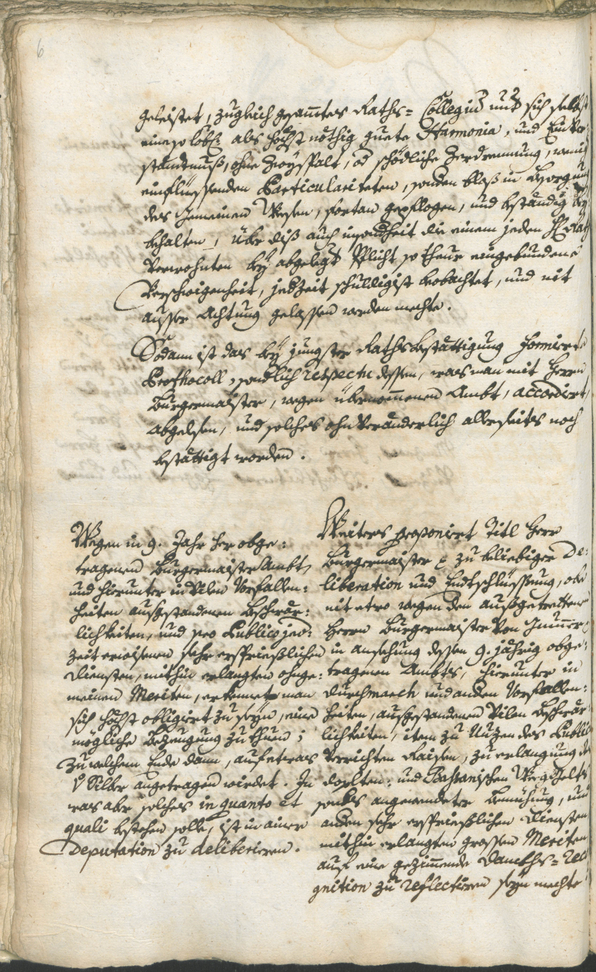 6
geleistet, zugleich gesamtes Raths= Collegium mit sich selbst
eine so löbl: als höchst nöthig guete Harmonia, und Einver
ständtnuß, ohne Zwyspalt, od schödliche Zerdrennung, wenig
einfliessenden Particulariteten, sonden bloß in Besorgung
des Gemeinen Wesen, fortan gepflogen, und beständig bey
behalten, über diß auch in die einem jeden H: Rath
Verwohnten bey abgelegt Pflicht so theur eingebundene
Verschwigenheit, jedzeit schuldigist beobachtet, und nit
ausser Achtung gelassen werden mechte.
Sodann ist das bey jüngster Rathsbestättigung formirte
Prothocoll, sondlich respectu dessen, was man mit Herrn
Burgermaister, wegen übernommenen Ambt, accordirt,
abgelesen, und solches ohnveränderlich allerseites noch
bestättigt worden.
Wegen in 9. Jahr her obge:
tragenen Burgermaister Ambt,
und hierunter in Vilen Vorfallen:
heiten außgestandenen Beschwär:
lichkeiten, und pro Publico jed:
zeit erwisenen sehr ersprießlichen
Diensten, mithin erlangten ohnge:
meinen Meriten, erkennete man
sich höchst obligirt zu seyn, eine
mögliche Bezeugung zu thuen;
zu welchem Ende dann, auf etwas
v Silber angetragen wirdet. In
was aber solches in quanto et
quali bestehen solle, ist in ainer
Deputation zu deliberieren.
Weiters proponirt Titl Herr
Burgermaister &c zu beliebiger De:
liberation und Entschliessung, ob
nit etwo wegen den außgetrettenen
Herrn Burgermaister von
in ansehung dessen 9. jährig obge:
tragenen Ambts, hierunter in
Durchmarch und anden Vorfallen:
heiten, außgestandenen Vilen Beschwär
lichkeiten, item zu Nuzen des Publici
Verrichten Raisen, zu erlangung
und
angewendeter Bemühung, und
anden sehr ersprießlichen Diensten
mithin erlangten grossen Meriten
auf eine gezimmende Danckhs= Reco
gnition zu reflectiren seyn mechte